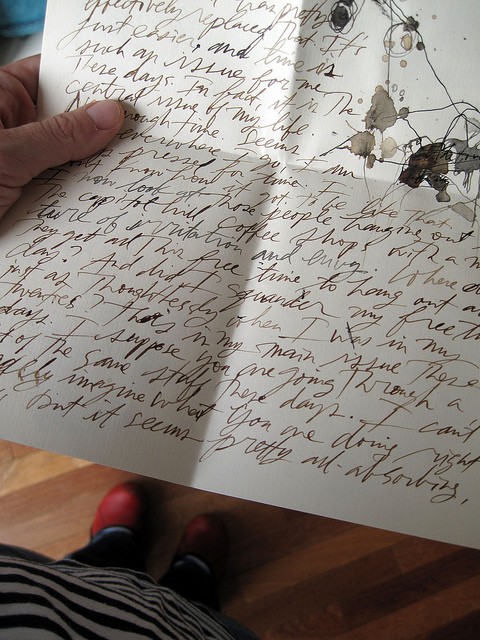 I was pretty
effectively replaced that. It's
just easier, and time is
such an issue for me
these days. In fact, it is the
central issue of my life.
enough time. Seems
everywhere I go I am
pressed for time. I
don't know how at not to be like that.
I now look at those people hanging out
The capitol hill coffee shops with a m
ture of irritation and envy. Where do
they get all his free time to hang out all
day? And didn't I squander my free time
just as thoughtlessly when I was in my
twenties? This is my main issue these
days. I suppose you are going through a
lot of the same stuff these days. I can't
imagine what you are doing right
but it seems pretty all-absorbing,